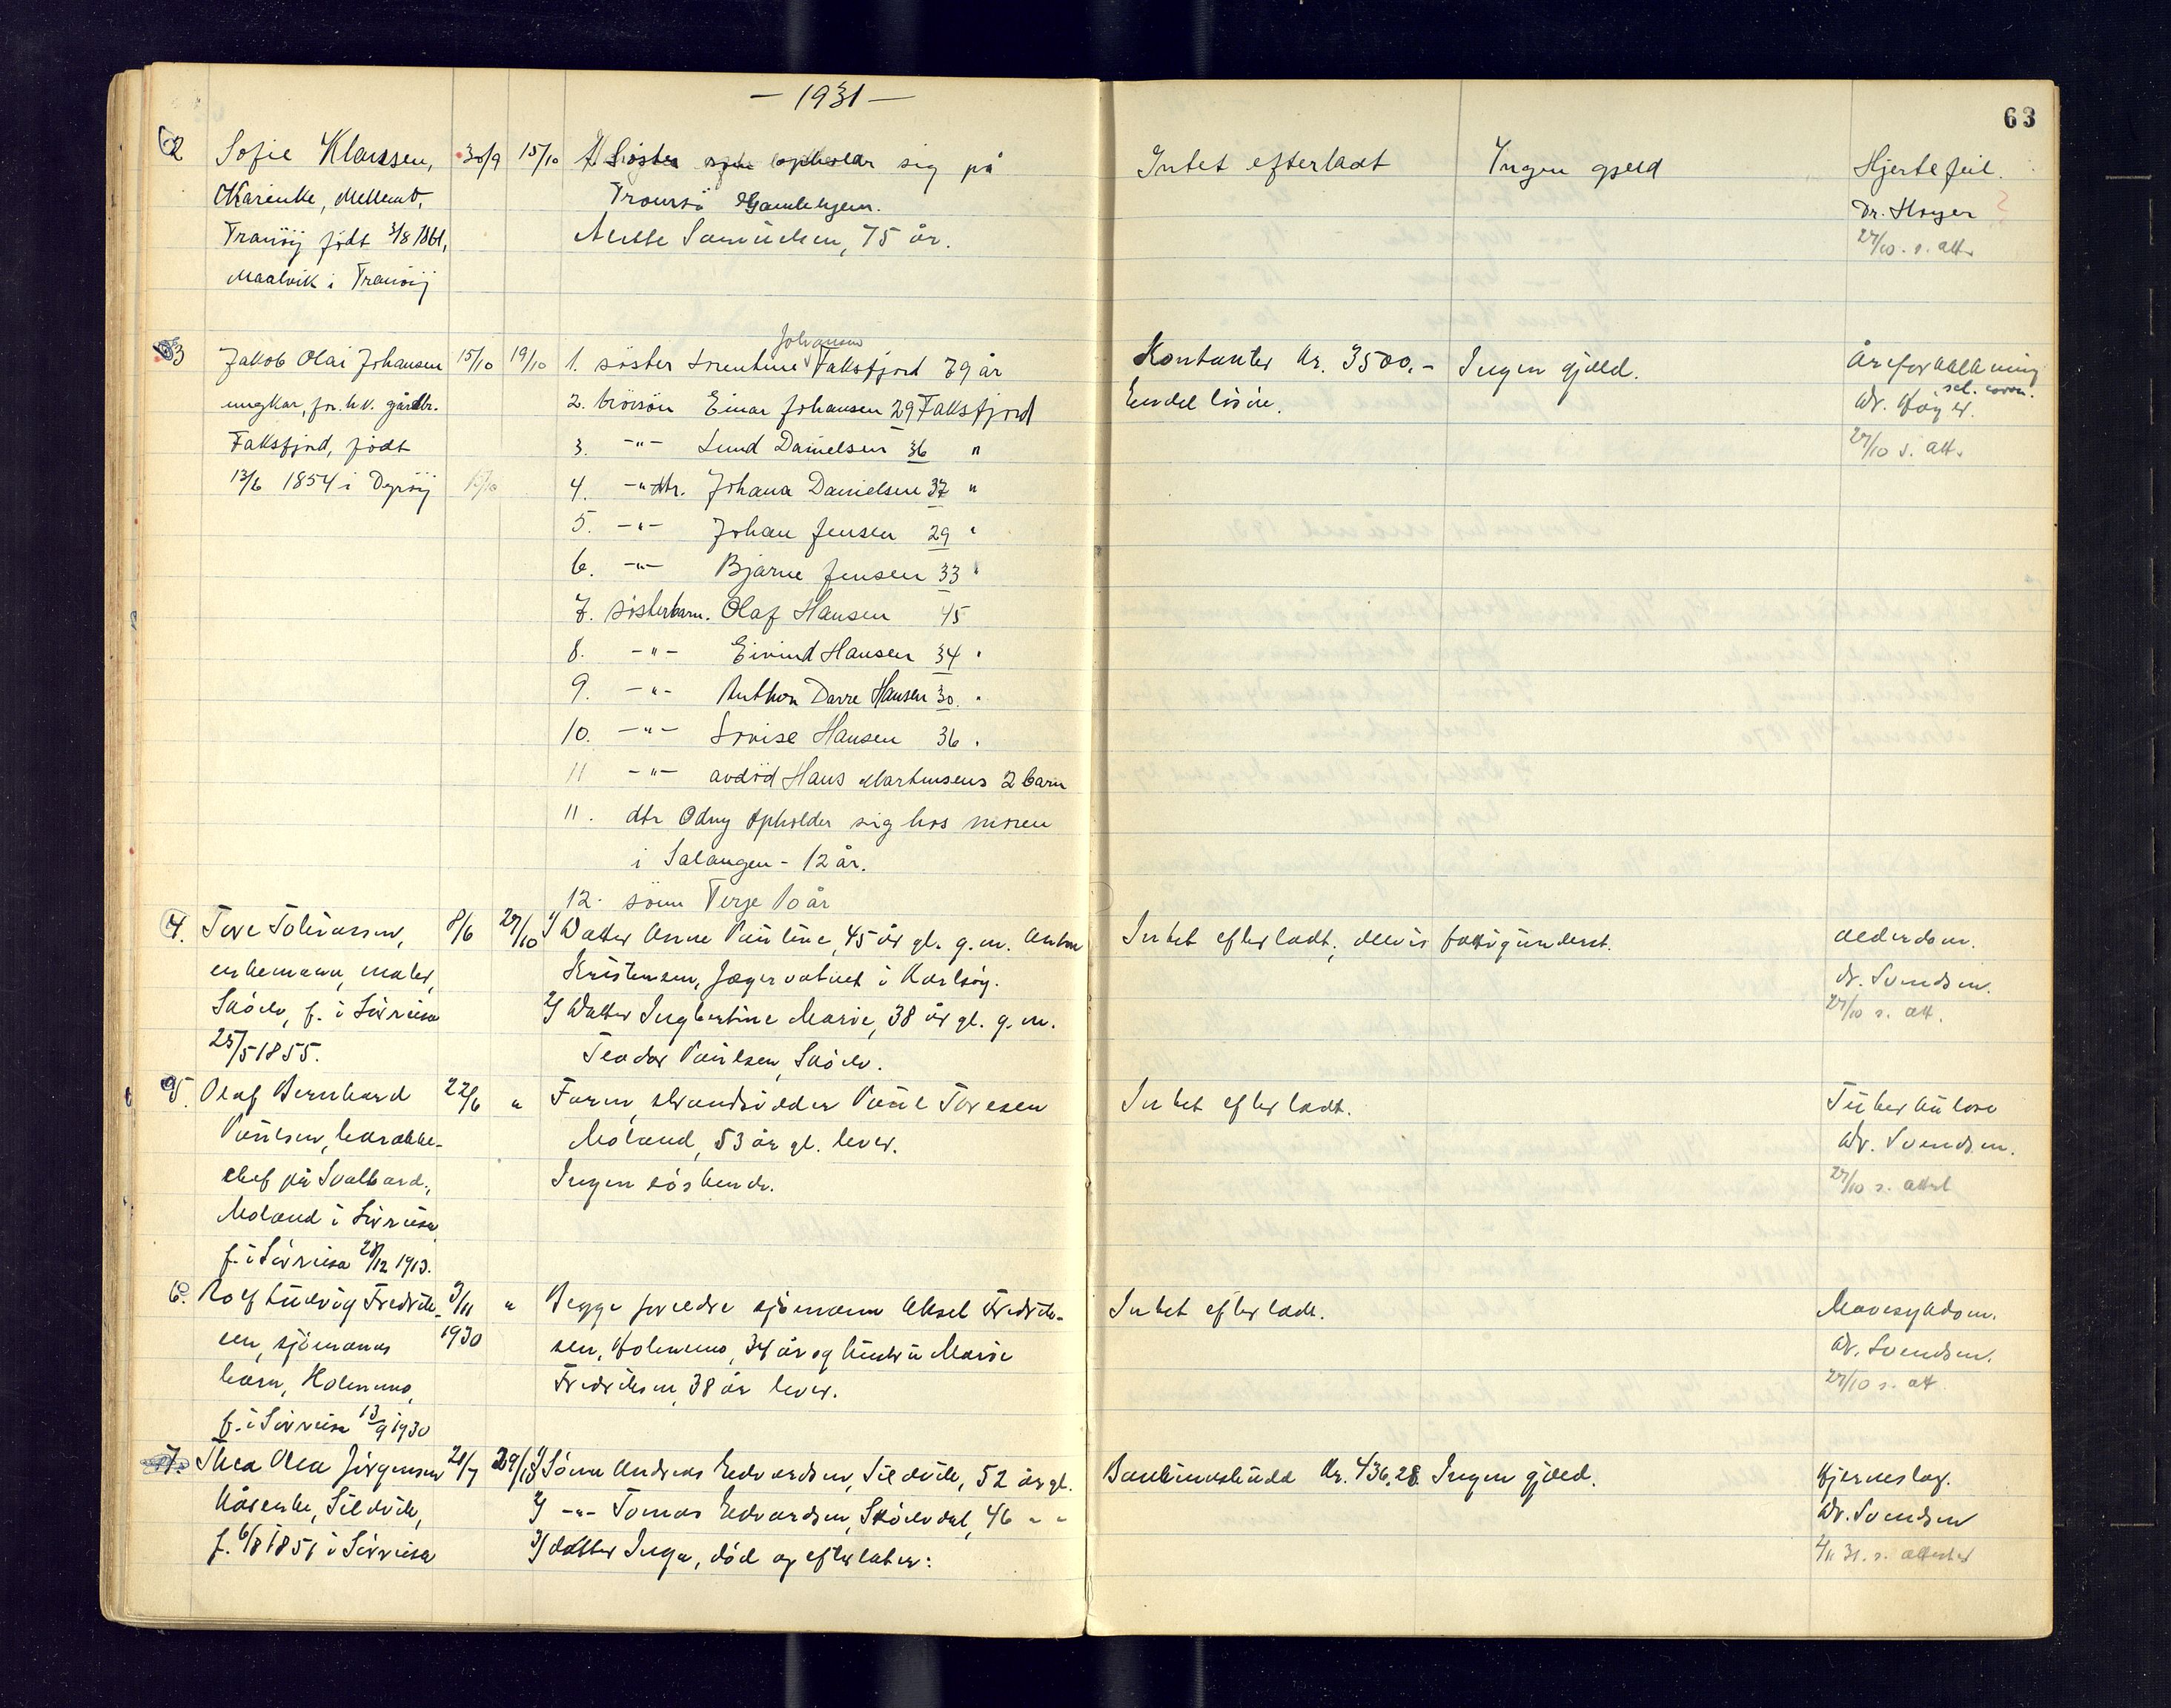 — 1931 —
63
2 Sofie Klaussen, 30/9 15/10 1/ Søster opholdar sig på
Tromsö Gamlehjem.
Mette Samuelsen, 75 år.
Karenke, Mellemb,
Tranöy født 3/8 1861,
Maalvik i Tranöy
Intet efterladt Ingen gjeld
Hjertefeil.
Dr. Høyer ?
27/10. s. att.
3 Jakob Olai Johansen 15/10 19/10
ungkar, for. h.v. gårdbr.
Faksfjord, født
13/6 1854 i Dyröy 15/10
Johansen
1. söster Lorentine Faksfjord 79 år
2. brörsön Einar Johansen 29 Faksfjord
3. -"- Lund Danielsen 36 "
4. -"- dtr. Johana Danielsen 37 "
5. -"- Johan Jensen 29 "
6. -"- Bjarne Jensen 33 "
7. sösterbarn. Olaf Hansen 45
8. -"- Eivind Hansen 34 "
9. -"- Anthon Darre Hansen 30. "
10. -"- Lovise Hansen 36 "
11 -"- avdöd Hans Martinsens 2 barn
11. dtr Odny opholder sig hos moren
i Salangen - 12 år.
12. sönn Terje 10 år
Kontanter kr. 3500.- Ingen gjeld.
Endel lösöre.
Åreforkalkning
Dr. Höyer.
27/10 s. att.
4. Tore Tobiassen, 8/6 27/10
enkemann, maler,
f. i Sörreisa
25/5 1855.
1/ Datter Anne Pauline, 45 år gl. g.m. Anton
Kristensen, Jægervatnet i Karlsöy.
2/ Datter Ingbertine Marie, 38 år gl. g.m.
Teodor Paulsen,
Intet efterladt, delvis fattigunderst.
Alderdom.
dr. Svendsen.
27/10 s. att.
5. Olaf Bernhard 22/6 "
Paulsen, barakke-
chef på Svalbard,
Moland i Sörreisa
f. i Sörreisa 28/12 1913.
Faren, strandsidder Paul Toresen
Moland, 53 år gl. lever.
Ingen söskende.
Intet efterladt.
Tuberkulose
Dr. Svendsen.
27/10 s. attest
6. Rolf Ludvig Fredrik- 3/11 "
sen, sjömanns 1930
barn, Holmemo,
f. i Sörreisa 13/9 1930
Begge foreldre sjömann Aksel Fredrik-
sen, Holmemo, 34 år og hustru Marie
Fredriksen, 38 år lever.
Intet efterladt.
Mavesykdom.
Dr. Svendsen.
27/10 s. att.
7. Thea Olea Jörgensen 28/7 29/10
kårenke, Sildvik,
f. 6/8 1851 i Sörreisa
1/ Sönn Andreas Edvardsen, Sildvik, 52 år gl.
2/ -"- Tomas Edvardsen, 46 " "
3/ datter Inga, död og efterlater:
Bankinnskudd kr. 436,28. Ingen gjeld.
Hjerneslag.
Dr. Svendsen
4/11 31. s. attester